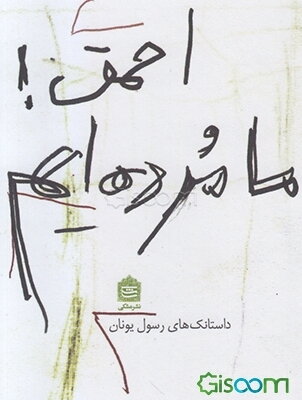 احمق!
ما مُرده‌ایم
نشر مشکی
داستانک‌های رسول یونان
Gisoom